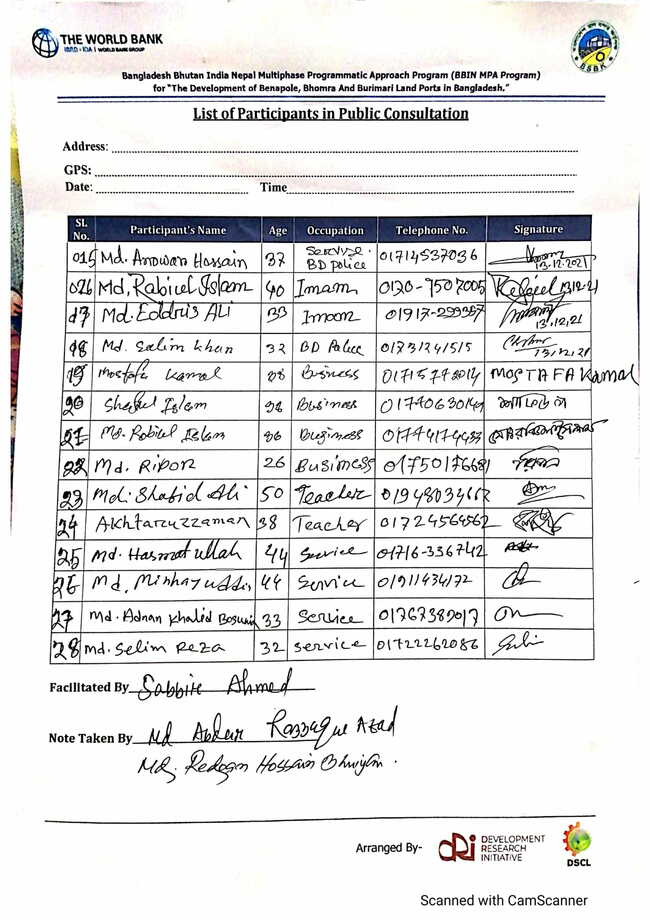 THE WORLD BANK
IBRD • IDA | WORLD BANK GROUP
BSBK
Bangladesh Bhutan India Nepal Multiphase Programmatic Approach Program (BBIN MPA Program)
for "The Development of Benapole, Bhomra And Burimari Land Ports in Bangladesh."
List of Participants in Public Consultation
Address:
GPS:
Date: Time
Sl. No. Participant's Name Age Occupation Telephone No. Signature
015 Md. Anowar Hossain 37 Service. BD police 01714537036 13.12.2021
026 Md, Rabiul Islam 40 Imam 13.12.21
17 Md. Eddris Ali 33 Imam 13,12,21
18 Md. Salim Khan 32 BD Police 01731241515 13/12/21
19 Mostafa Kamal Business MOSTAFA Kamal
20 Islam Business
21 Md. Robiul Islam Business
22 Md. Ripon 26 Business 01750176681
23 Md. Shahid Ali 50 Teacher
24 Akhtaruzzaman 38 Teacher 01724564562
25 Md. Hasmatullah 44 Service 01716-336742
26 Md, Minhazuddin 44 Service 01911434172
27 Md. Adnan Khalid 33 Service 01767389017
28 Md. Selim Reza 32 Service 01722262086
Facilitated By Sabbir Ahmed
Note Taken By Md Abdur Razzaque Azad
Md. Hossain Bhuiyan.
Arranged By- DRI DEVELOPMENT RESEARCH INITIATIVE
DSCL
Scanned with CamScanner